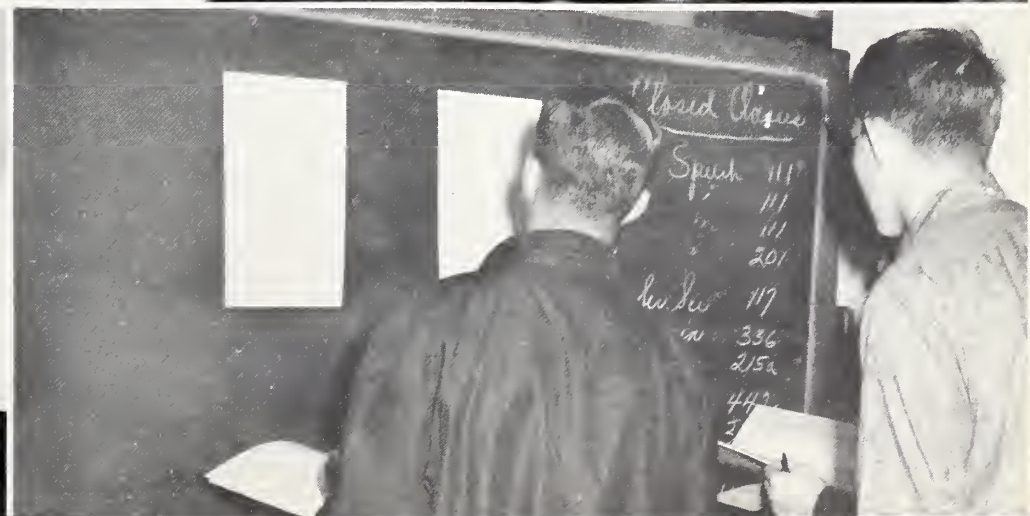 Closed Classes
Speech 111
" 111
" 111
" 201
117
336
215a
447